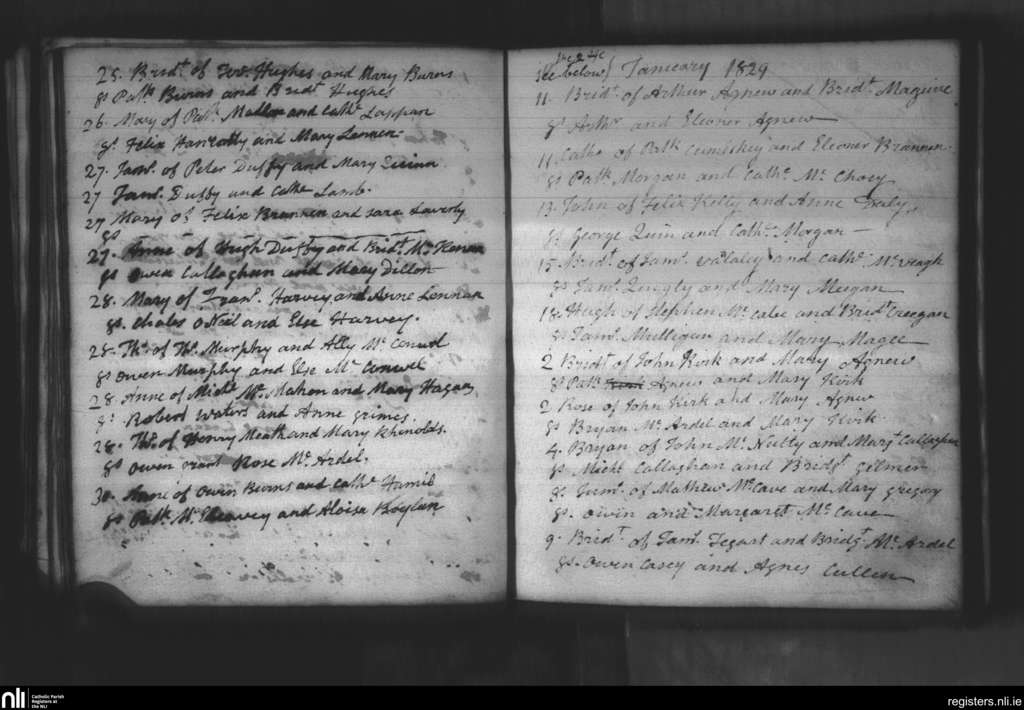 25. Bridt. of Hughes and Mary Burns
gs Patk Burns and Bridt Hughes
26. Mary of Patk Mallon and Cathe. Lappan
gs. Felix Hanratty and Mary Lennon.
27. Jams. of Peter Duffy and Mary Quinn
27 Jams. Duffy and Cathe Lamb.
27 Mary of Felix Brannen and Sara Laverty
gs
27. Anne of Hugh Duffy and Bridt. Mc Kenan
gs Owen Callaghan and Mary Dillon
28. Mary of Frans. Harvey, and Anne Lennan
gs. Chales ONeil and Else Harvey.
28. Ths. of Ths. Murphy and Ally Mc Conwel
gs Owen Murphy and Else Mc Conwel
28. Anne of Michl Mc Mahon and Mary Hagan
gs. Robert Waters and Anne grimes.
28. Ths. of Henry Meath and Mary Rhenolds.
gs Owen and Rose Mc Ardel.
30. Anne of Owen Burns and Cathe
gs Patk Mc and Aloisa Boylan
see below} January 1829
11. Bridt. of Arthur Agnew and Bridt. Maguire
gs Arthr and Eleoner Agnew
11. Cathe of Patk Cumlskey and Eleoner Brannen.
gs Patk Morgan and Cathe. Mc Choey
13. John of Felix Kelly and Anne
gs George Quin and Cathe. Morgan
15. Bridt. of Jams. and Cathe. Mc Veagh
gs Jams. Quigly and Mary Meegan
18. Hugh of Stephen Mc Cabe and Bridt Creegan
gs Jams. Mulligan and Mary Magee
2 Bridt. of John Kirk and Mary Agnew
gs Patk Agnew and Mary Kirk
2 Rose of John Kirk and Mary Agnew
gs Bryan Mc Ardel and Mary Kirk
4. Bryan of John Mc Nulty and Margt Callaghan
gs Michl Callaghan and Bridgt. gilmer
gs. Jams. of Mathew Mc Cave and Mary gregory
gs. Owin and Margaret Mc Cave
9. Bridt. of Jams. Tegart and Bridgt. Mc Ardel
gs. Owen Casey and Agnes Cullen
nli
Catholic Parish
Registers at
the NLI
registers.nli.ie